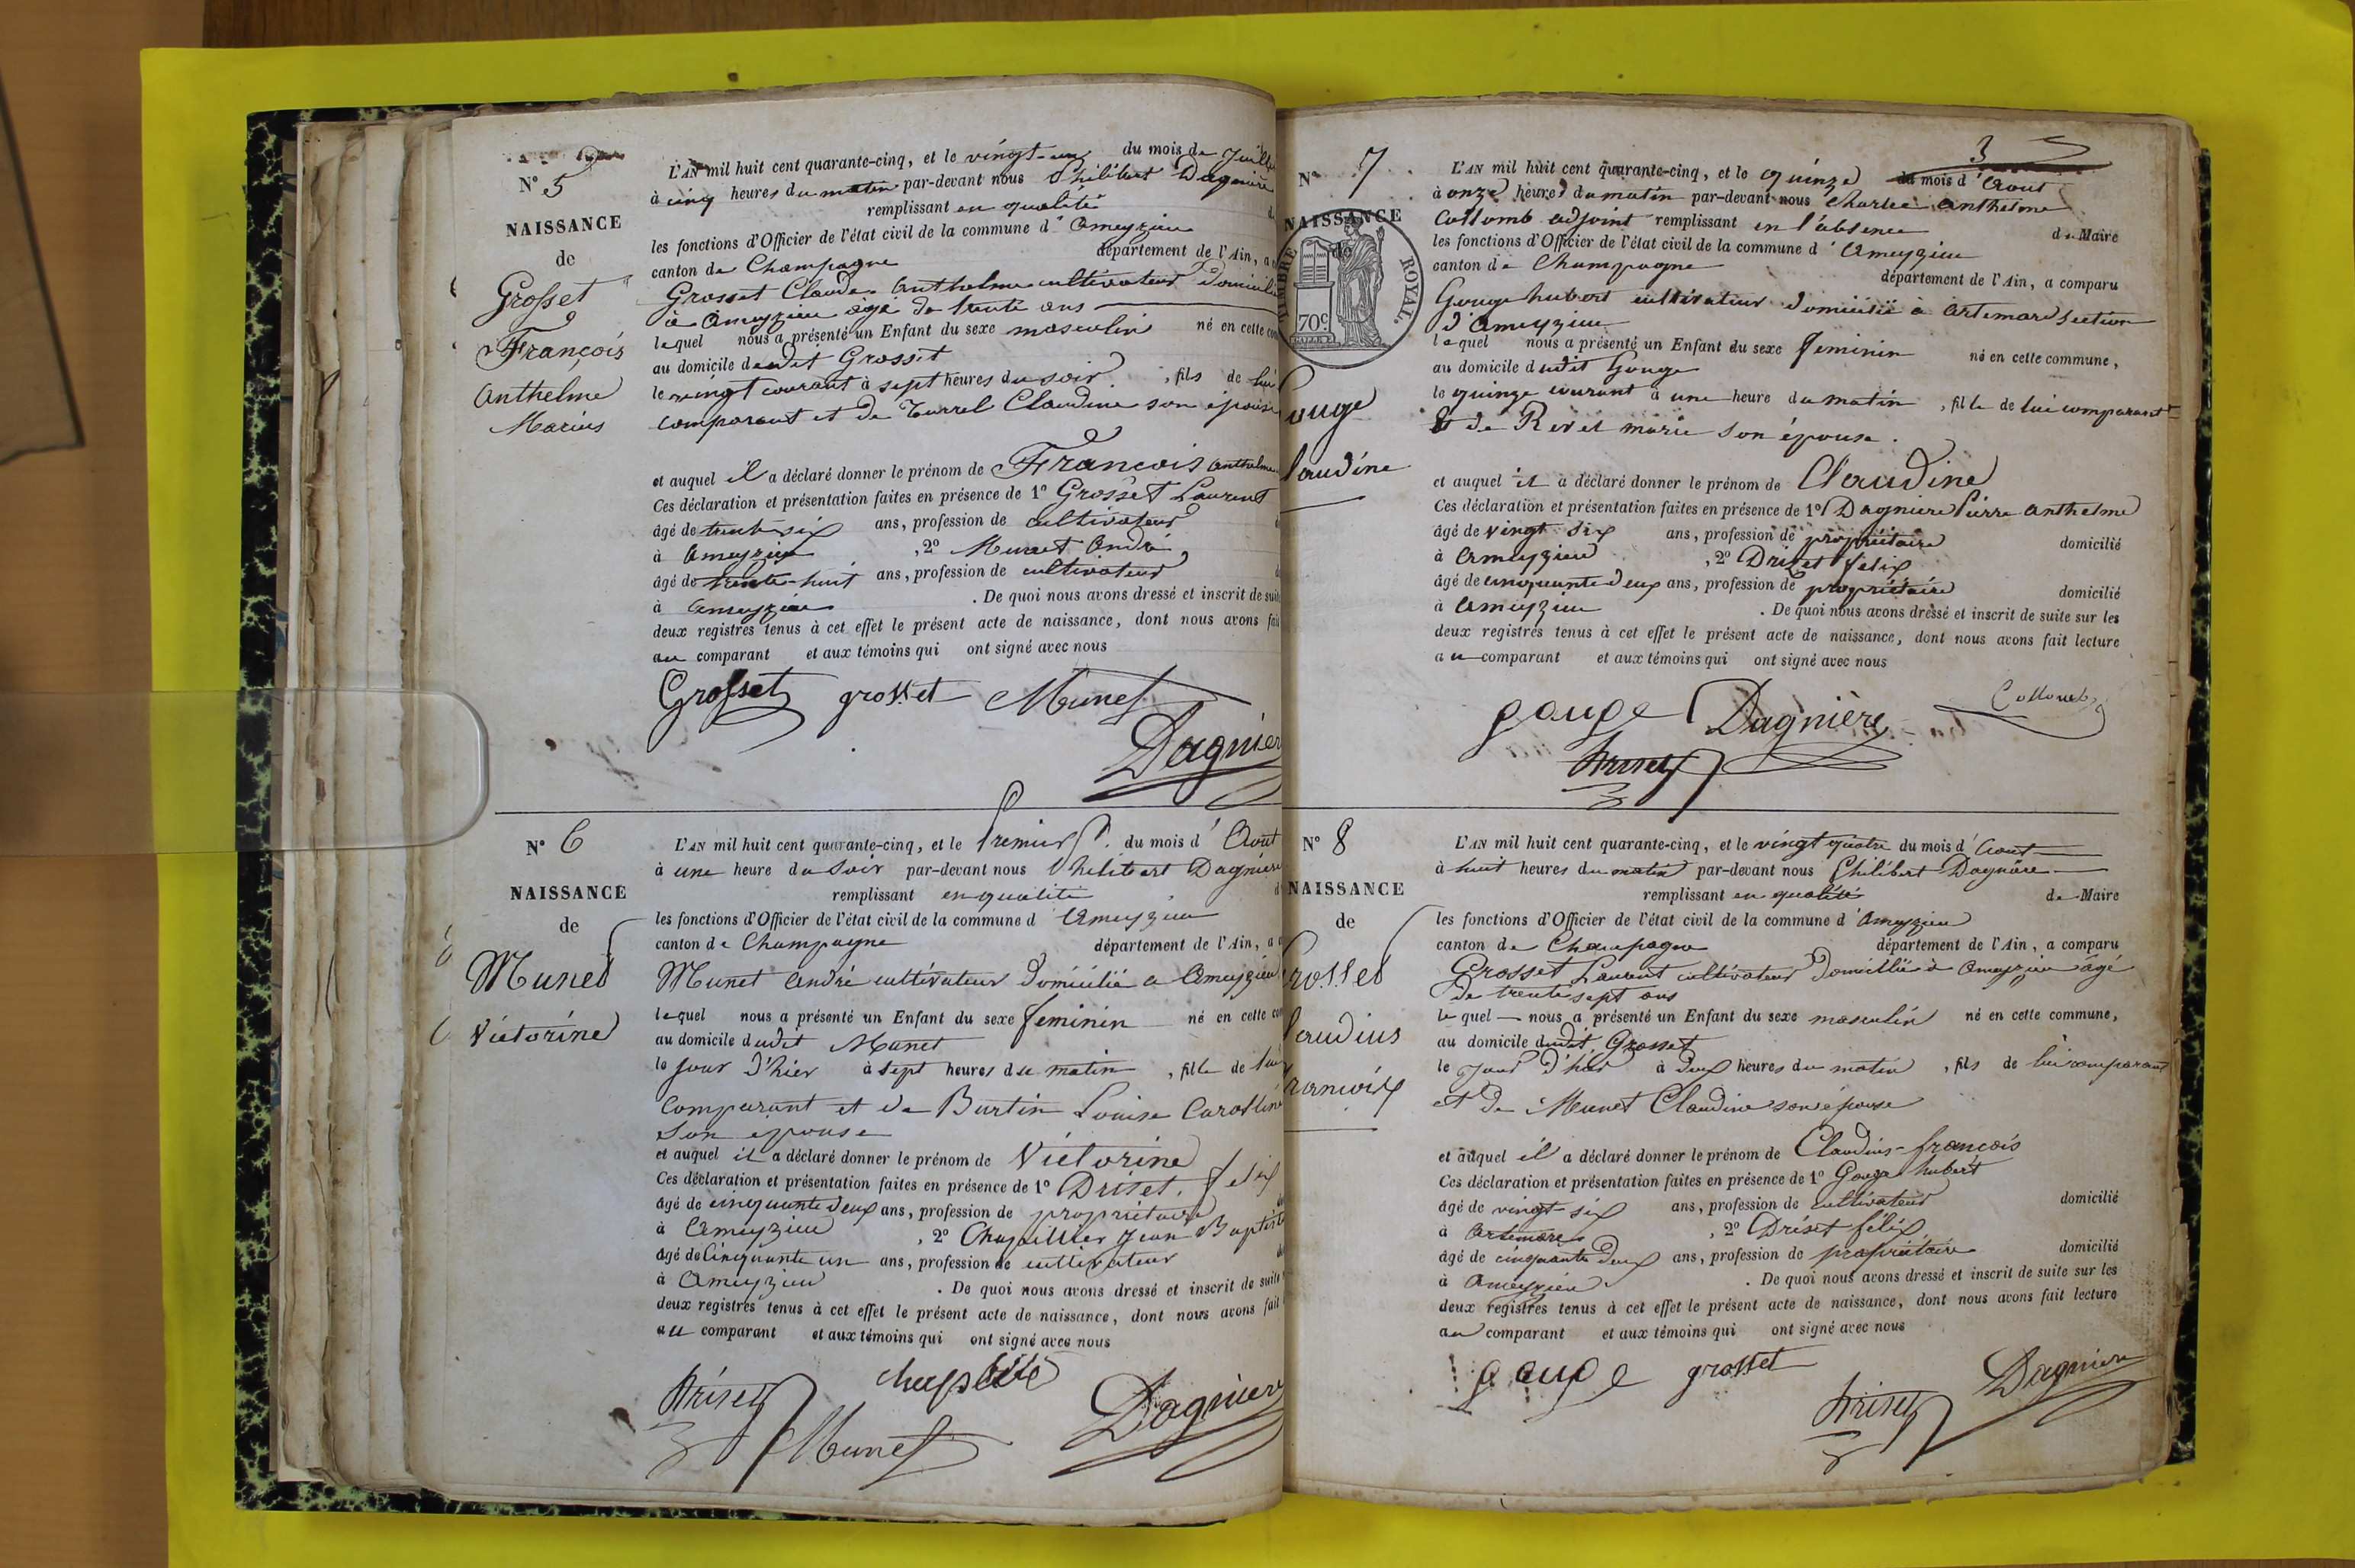 N° 5
NAISSANCE
de
Grosset
François
Anthelme
Marius
L'AN mil huit cent quarante-cinq, et le vingt-un du mois de Juill
à cinq heures du matin par-devant nous Philibert Dagniere
remplissant en qualité
les fonctions d'Officier de l'état civil de la commune d'Ameyzieu
canton de Champagne département de l'Ain, a
Grosset Claude Anthelme cultivateur domicilié
à Ameyzieu âgé de trente ans
lequel nous a présenté un Enfant du sexe masculin né en cette com
au domicile dudit Grosset
le vingt courant à sept heures du soir, fils de lui
comparant et de Turrel Claudine son épouse
et auquel il a déclaré donner le prénom de François Anthelme
Ces déclaration et présentation faites en présence de 1° Grosset Laurent
âgé de trente six ans, profession de cultivateur
à Ameyzieu, 2° Munet André
âgé de trente-huit ans, profession de cultivateur
à Ameyzieu. De quoi nous avons dressé et inscrit de suite
deux registres tenus à cet effet le présent acte de naissance, dont nous avons fait
au comparant et aux témoins qui ont signé avec nous
Grosset grosset Munet
Dagnier
N° 6
NAISSANCE
de
Munet
Victorine
L'AN mil huit cent quarante-cinq, et le Premier du mois d'Aout
à une heure du Soir par-devant nous Philibert Dagniere
remplissant en qualité
les fonctions d'Officier de l'état civil de la commune d Ameyzieu
canton de Champagne département de l'Ain, a
Munet André cultivateur domicilié a Ameyzieu
lequel nous a présenté un Enfant du sexe feminin né en cette com
au domicile dudit Munet
le jour d'hier à sept heures du matin, fille de lui
comparant et de Burtin Louise Carolline
son epouse
et auquel il a déclaré donner le prénom de Victorine
Ces déclaration et présentation faites en présence de 1° Driset felix
âgé de cinquante deux ans, profession de propriétaire
à Ameyzieu, 2° Chapillier Jean Baptiste
âgé de Cinquante un ans, profession de cultivateur
à Ameyzieu. De quoi nous avons dressé et inscrit de suite
deux registres tenus à cet effet le présent acte de naissance, dont nous avons fait
au comparant et aux témoins qui ont signé avec nous
Driset
Munet Dagniere
3
N° 7
NAISSANCE
de
TIMBRE ROYAL.
70c.
ouge
laudine
L'AN mil huit cent quarante-cinq, et le quinze du mois d'Aout
à onze heures du matin par-devant nous Charles Anthelme
Collomb adjoint remplissant en l'absence du Maire
les fonctions d'Officier de l'état civil de la commune d'Ameyzieu
canton de Champagne département de l'Ain, a comparu
Gouge hubert cultivateur domicilié à Artemare section
d'Ameyzieu
lequel nous a présenté un Enfant du sexe feminin né en cette commune,
au domicile dudit Gouge
le quinze courant à une heure du matin, fille de lui comparant
& de Revel marie son épouse.
et auquel il a déclaré donner le prénom de Claudine
Ces déclaration et présentation faites en présence de 1° Dagniere Pierre Anthelme
âgé de vingt six ans, profession de propriétaire domicilié
à Ameyzieu, 2° Driset felix
âgé de cinquante deux ans, profession de propriétaire domicilié
à Ameyzieu. De quoi nous avons dressé et inscrit de suite sur les
deux registres tenus à cet effet le présent acte de naissance, dont nous avons fait lecture
au comparant et aux témoins qui ont signé avec nous
gouge Dagnière Collomb
Driset
N° 8
NAISSANCE
de
rosset
laudius
rançois
L'AN mil huit cent quarante-cinq, et le vingt quatre du mois d'Aout
à huit heures du matin par-devant nous Philibert Dagnière
remplissant en qualité de Maire
les fonctions d'Officier de l'état civil de la commune d'Ameyzieu
canton de Champagne département de l'Ain, a comparu
Grosset Laurent cultivateur domicilié à Ameyzieu âgé
de trente sept ans
lequel nous a présenté un Enfant du sexe masculin né en cette commune,
au domicile dudit Grosset
le jour d'hier à deux heures du matin, fils de lui comparant
et de Munet Claudine son épouse
et auquel il a déclaré donner le prénom de Claudius-françois
Ces déclaration et présentation faites en présence de 1° Gouge hubert
âgé de vingt six ans, profession de cultivateur domicilié
à Artemare, 2° Driset félix
âgé de cinquante deux ans, profession de propriétaire domicilié
à Ameyzieu. De quoi nous avons dressé et inscrit de suite sur les
deux registres tenus à cet effet le présent acte de naissance, dont nous avons fait lecture
au comparant et aux témoins qui ont signé avec nous
gouge grosset Dagniere
Driset